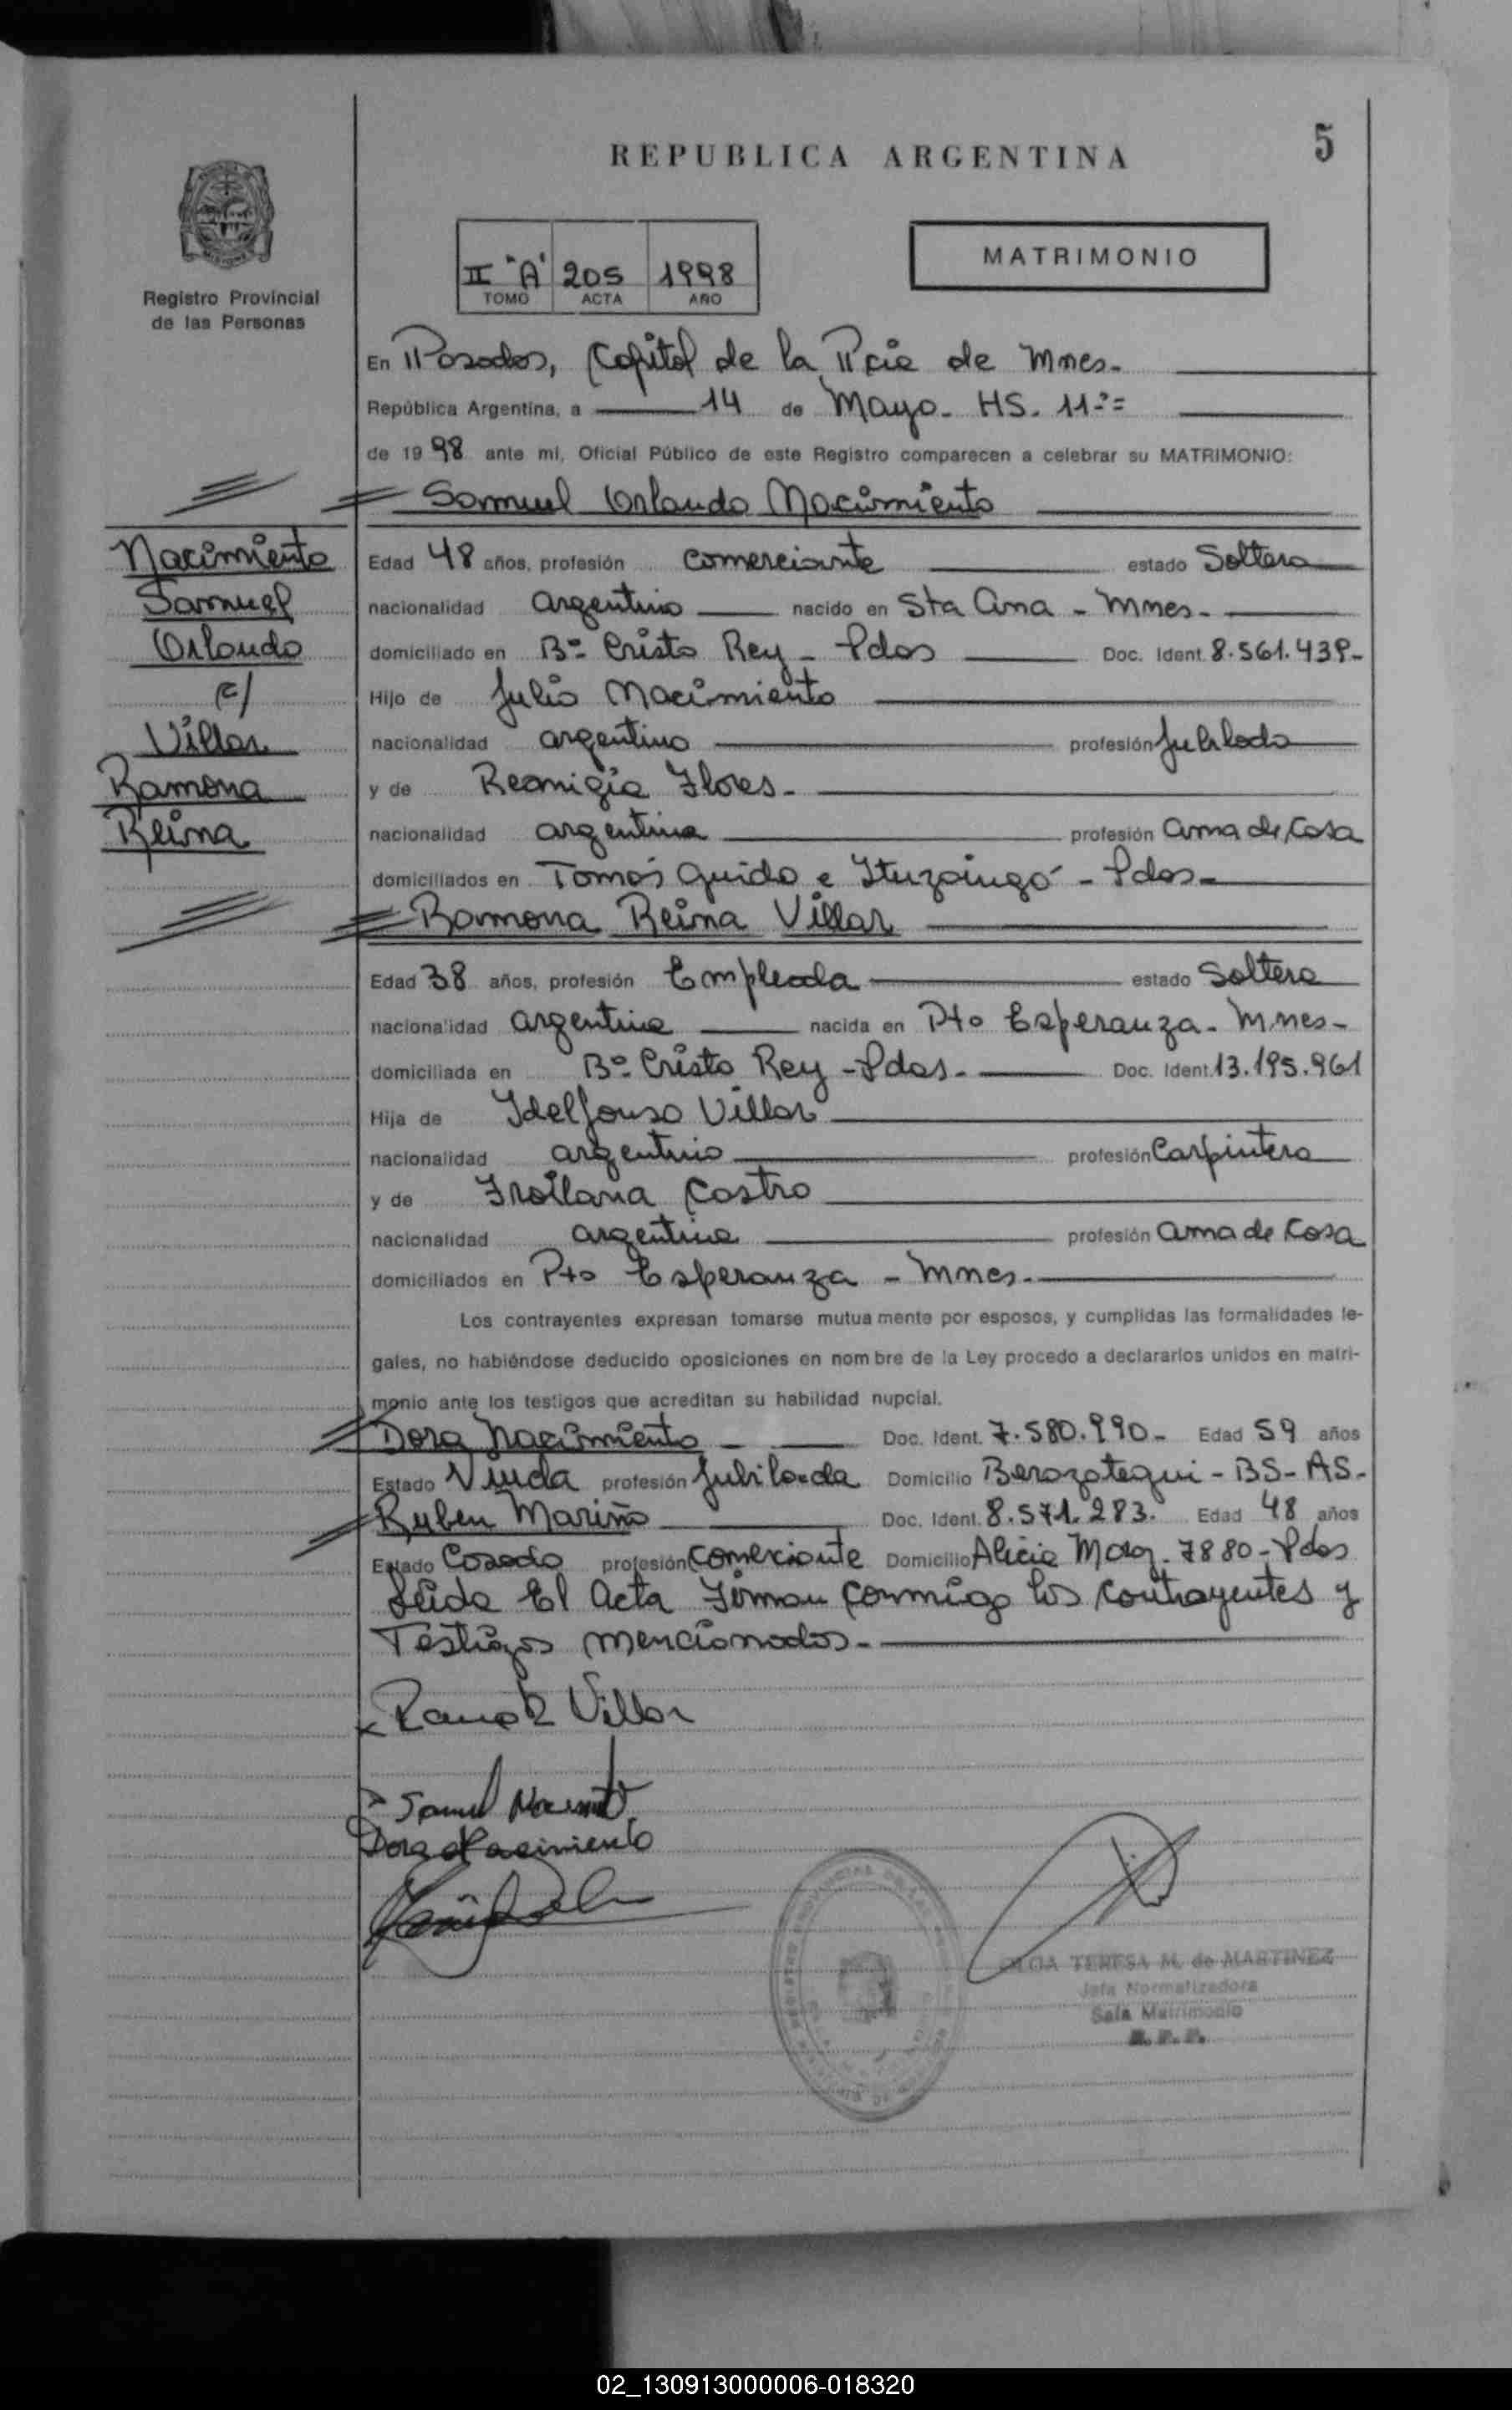 REPUBLICA ARGENTINA
5
Registro Provincial
de las Personas
II "A" 205 1998
TOMO ACTA AÑO
MATRIMONIO
En Posadas, Capital de la Pcia de Mnes.
República Argentina, a 14 de Mayo. HS. 11
de 1998 ante mi, Oficial Público de este Registro comparecen a celebrar su MATRIMONIO:
Samuel Orlando Nacimiento
Nacimiento
Samuel
Orlando
c/
Villar
Ramona
Reina
Edad 48 años, profesión comerciante estado Soltero
nacionalidad argentino nacido en Sta Ana - Mnes.
domiciliado en Bº Cristo Rey - Pdas Doc. Ident. 8.561.439-
Hijo de Julio Nacimiento
nacionalidad argentino profesión Jubilado
y de Remigia Flores.
nacionalidad argentina profesión ama de Casa
domiciliados en Tomás Guido e Ituzaingó - Pdas-
Ramona Reina Villar
Edad 38 años, profesión Empleada estado Soltera
nacionalidad argentina nacida en Pto Esperanza. Mnes-
domiciliada en Bº Cristo Rey - Pdas. Doc. Ident. 13.195.961
Hija de Idelfonso Villar
nacionalidad argentino profesión Carpintero
y de Froilana Castro
nacionalidad argentina profesión ama de Casa
domiciliados en Pto Esperanza - Mnes.
Los contrayentes expresan tomarse mutua mente por esposos, y cumplidas las formalidades le-
gales, no habiéndose deducido oposiciones en nom bre de la Ley procedo a declararlos unidos en matri-
monio ante los testigos que acreditan su habilidad nupcial.
Dora Nacimiento Doc. Ident. 7.580.990- Edad 59 años
Estado Viuda profesión Jubilada Domicilio Berazategui - BS- AS-
Ruben Mariño Doc. Ident. 8.571.283. Edad 48 años
Estado Casado profesión Comerciante Domicilio Alicia M 7880 - Pdas
Leida El Acta Firman conmigo los contrayentes y
Testigos mencionados.
Ramona R Villar
Samuel Nacimiento
Dora Nacimiento
TERESA M. de MARTINEZ
Jefa Normatizadora
Sala Matrimonio
R. P. P.
02_130913000006-018320